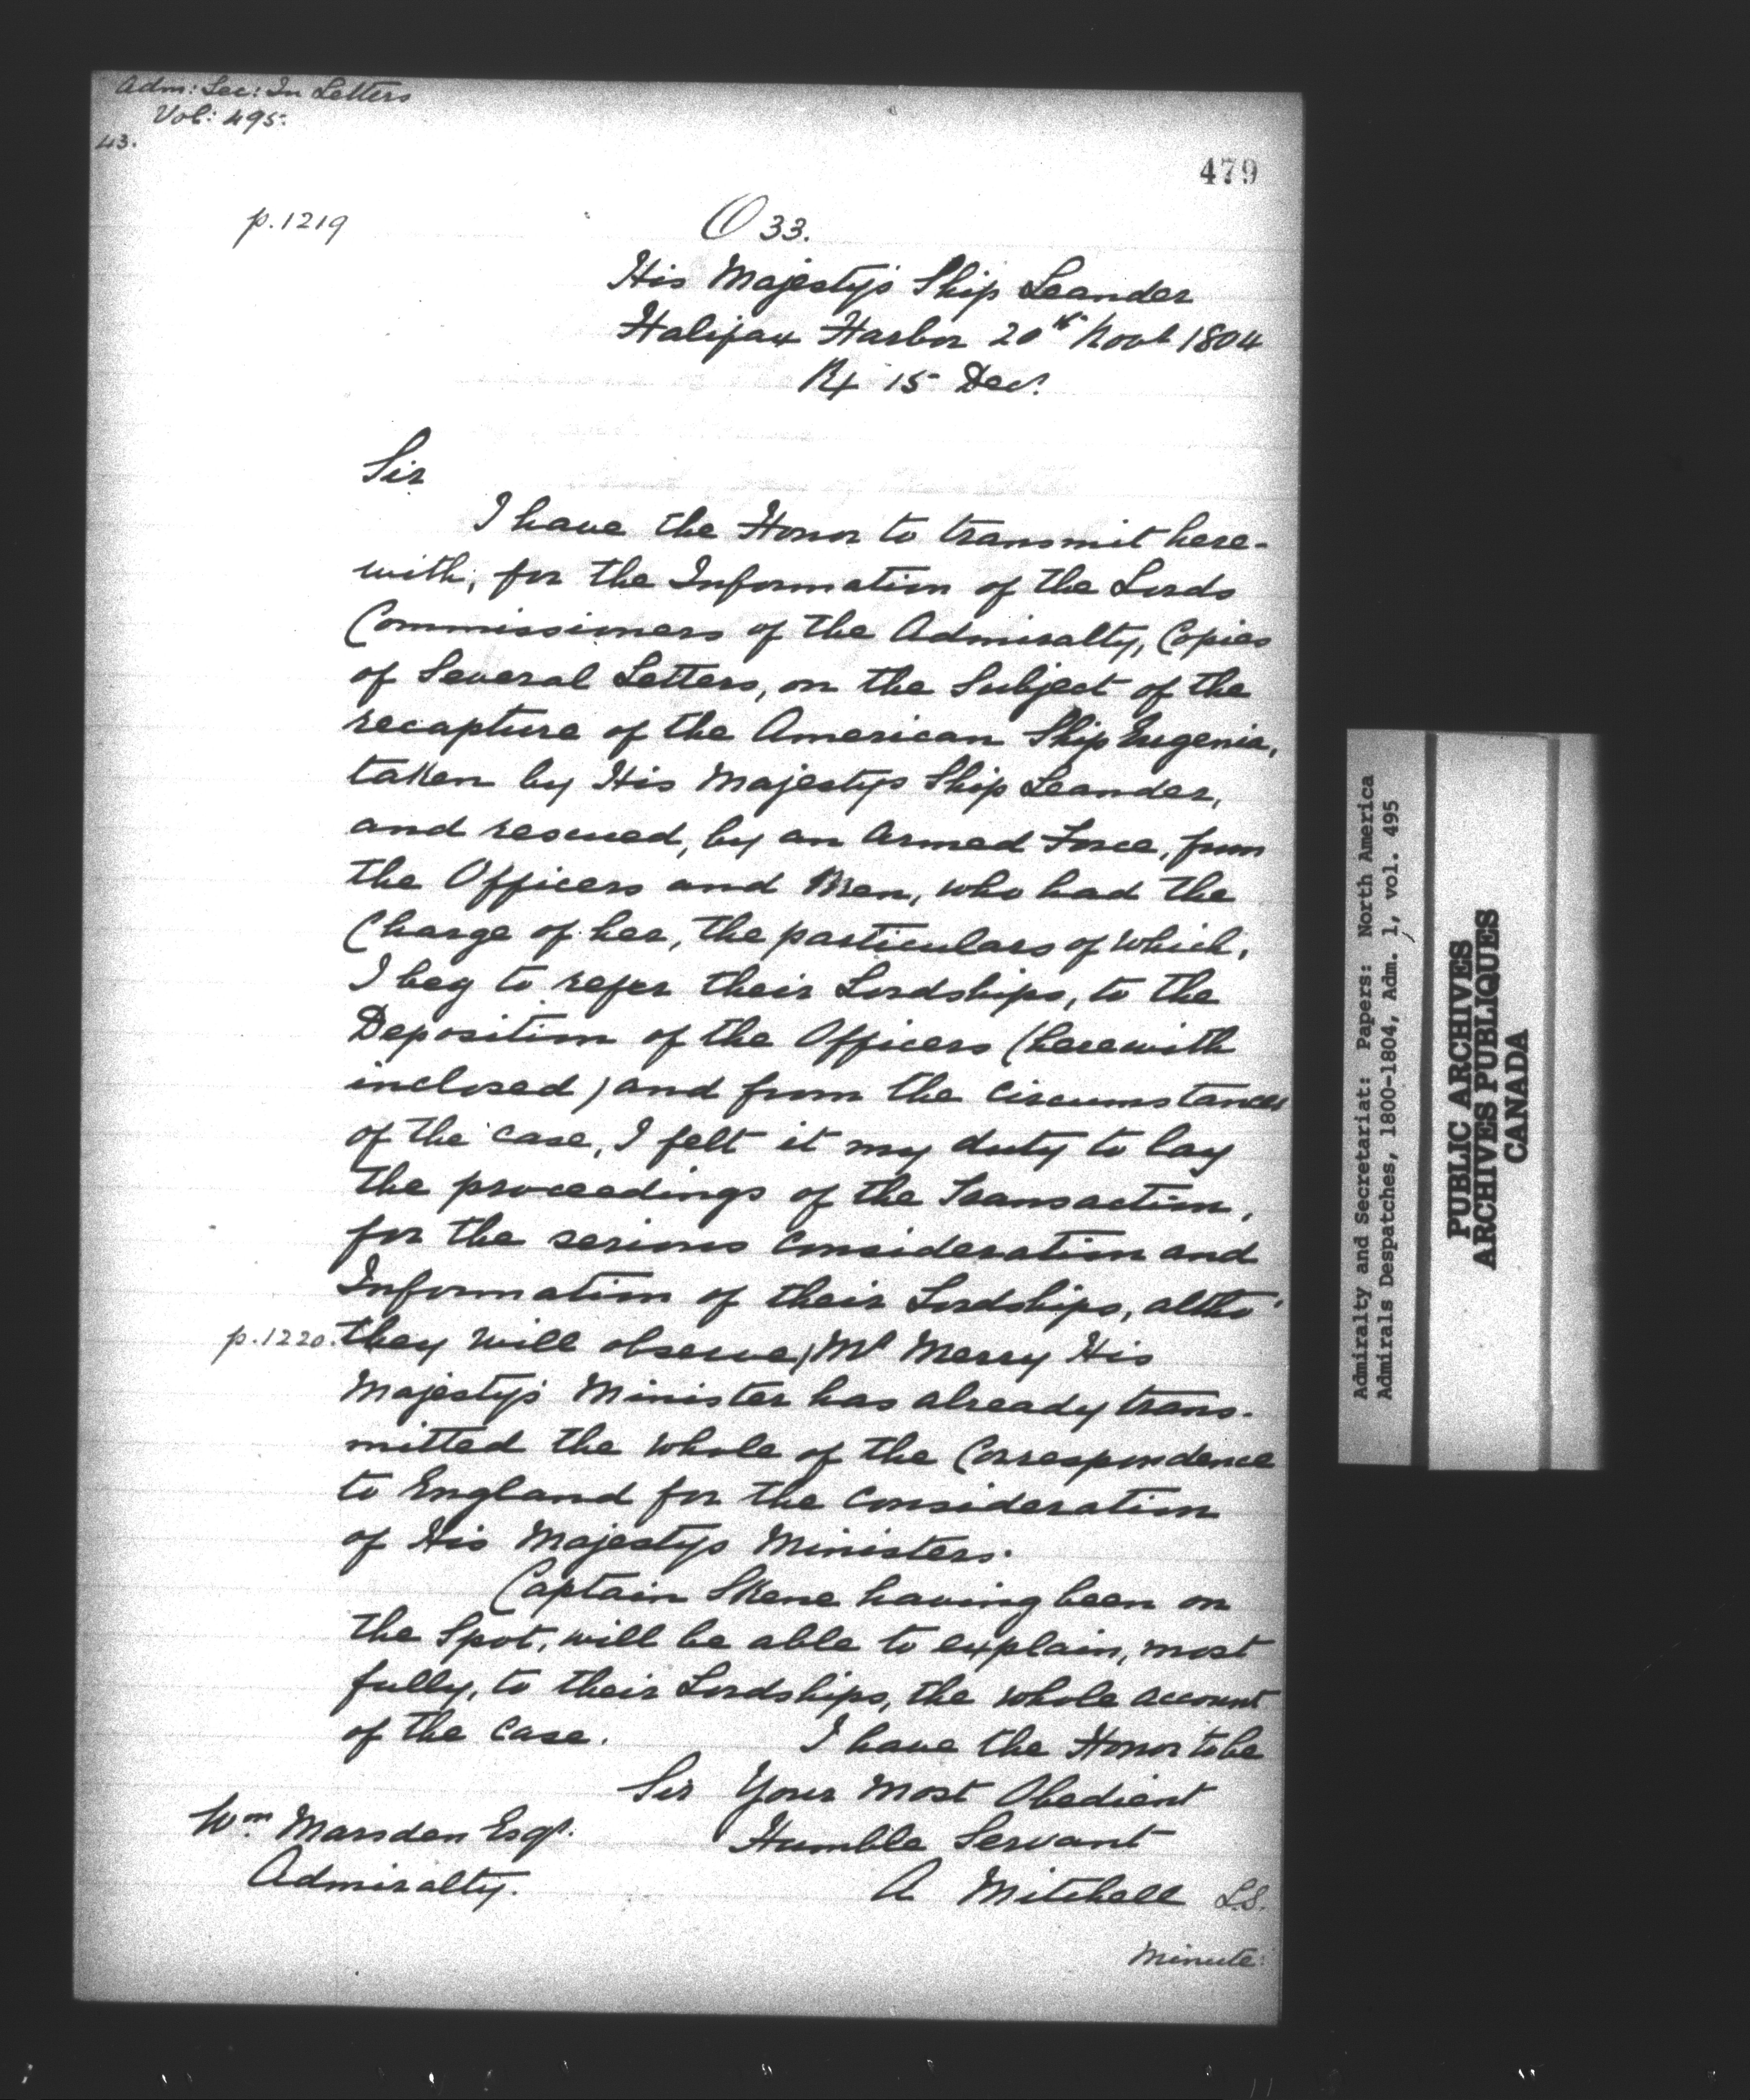 Adm: Sec: In Letters
Vol: 495.
43.
479
p. 1219
O 33.
His Majesty's Ship Leander
Halifax Harbor 20th Novb 1804
Rx 15 Decr.
Sir
I have the Honor to transmit here-
with, for the Information of the Lords
Commissioners of the Admiralty, Copies
of Several Letters, on the Subject of the
recapture of the American Ship Eugenia,
taken by His Majestys Ship Leander,
and rescued, by an Armed Force, from
the Officers and Men, who had the
Charge of her, the particulars of which,
I beg to refer their Lordships, to the
Deposition of the Officers (herewith
inclosed) and from the Circumstances
of the case, I felt it my duty to lay
the proceedings of the Transaction,
for the serious Consideration and
Information of their Lordships, altho'
p. 1220. they will observe, Mr Merry His
Majesty's Minister has already trans-
mitted the whole of the Correspondence
to England for the Consideration
of His Majestys Ministers.
Captain Skene having been on
the Spot, will be able to explain, most
fully, to their Lordships, the whole account
of the Case. I have the Honor to be
Sir Your Most Obedient
Humble Servant
Wm Marsden Esqr.
Admiralty.
A Mitchell L.S.
Minute:
Admiralty and Secretariat: Papers: North America
Admirals Despatches, 1800-1804, Adm. 1, vol. 495
PUBLIC ARCHIVES
ARCHIVES PUBLIQUES
CANADA